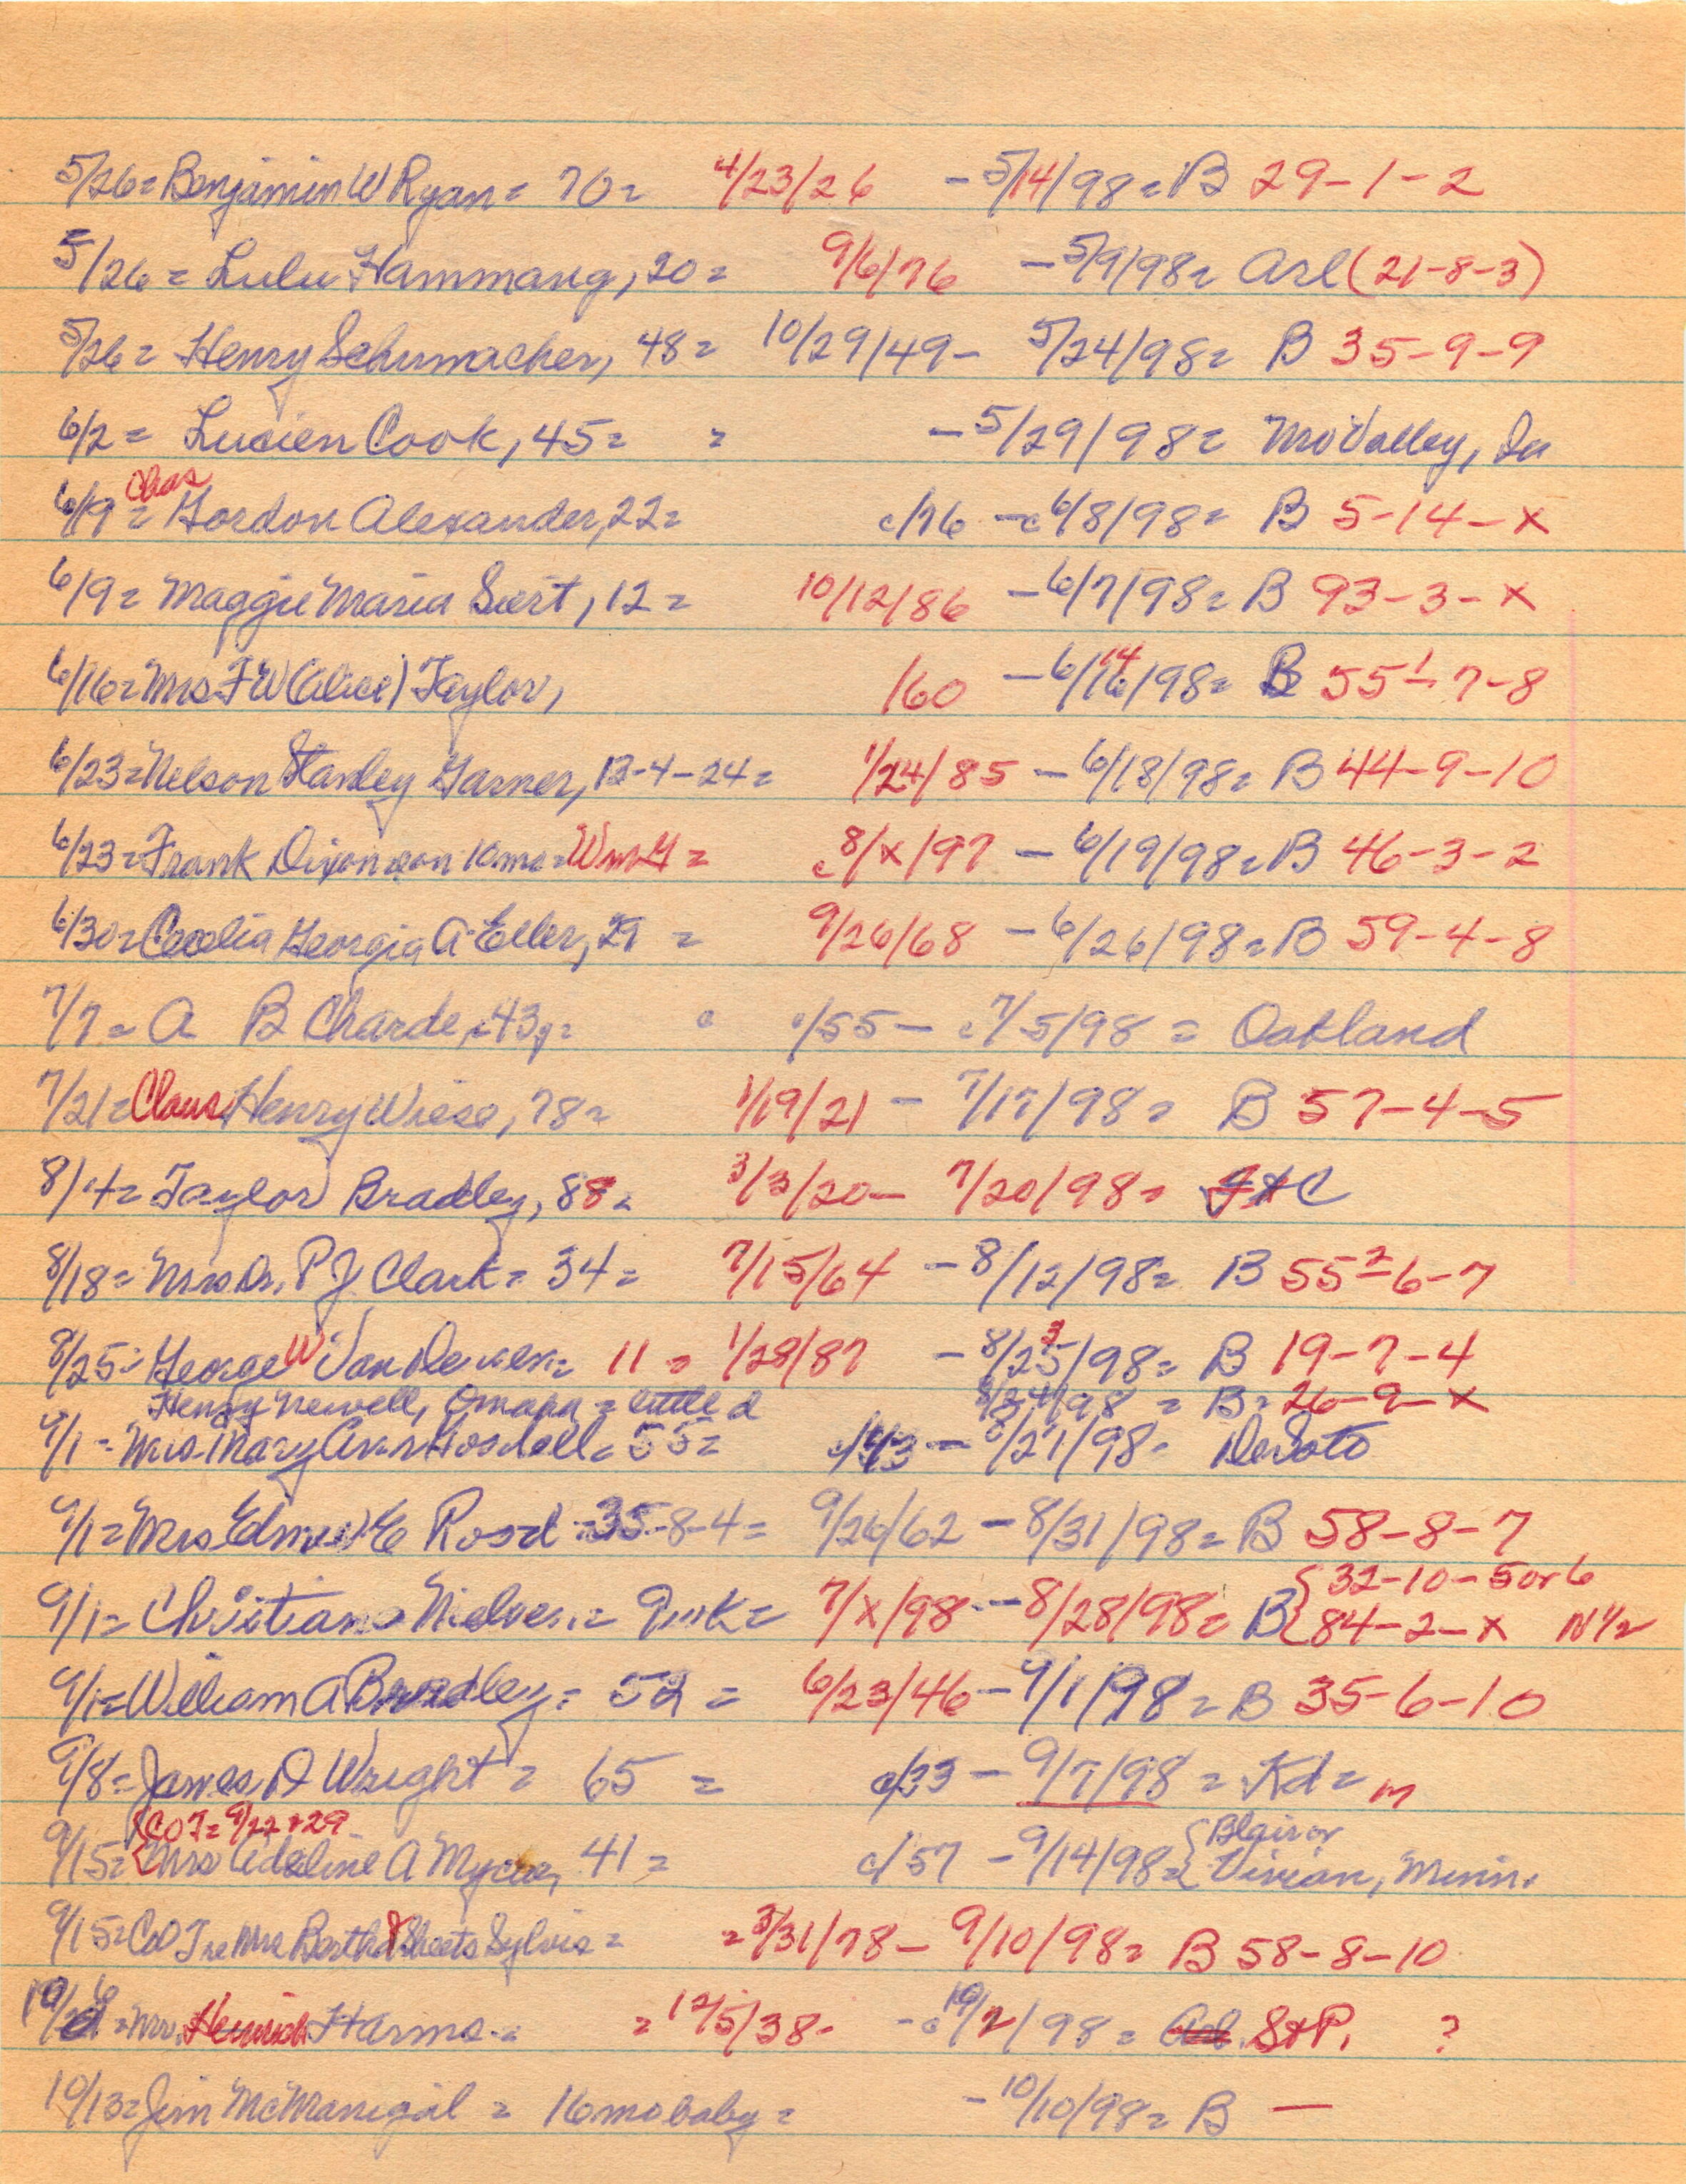 5/26= Benjamin W Ryan= 70= 4/23/26 - 5/14/98= B 29-1-2
5/26= Lulu Hammang, 20= 9/6/76 - 5/9/98= Arl (21-8-3)
5/26= Henry Schumacher, 48= 10/29/49- 5/24/98= B 35-9-9
6/2= Lucien Cook, 45= = - 5/29/98= Mo Valley, Ia
Chas
6/9= Gordon Alexander, 22= c/76 - c6/8/98= B 5-14-x
6/9= Maggie Maria Siert, 12= 10/12/86 - 6/7/98= B 93-3-x
6/16= Mrs. F W (Alice) Taylor, /60 - 6/14/98= B 55¹-7-8
6/23= Nelson Stanley Garner, 13-4-24= 1/24/85 - 6/18/98= B 44-9-10
6/23= Frank Dixon son 10mo= Wm G= c8/x/97 - 6/19/98= B 46-3-2
6/30= Cecelia Georgia A Eller, 29 = 9/26/68 - 6/26/98= B 59-4-8
7/7= A B Charde, 43y= c/55 - c7/5/98 = Oakland
7/21= Claus Henry Wiese, 78= 1/19/21 - 7/17/98= B 57-4-5
8/4= Taylor Bradley, 88= 3/3/20- 7/20/98= C
8/18= Mrs. Dr. P J Clark= 34= 7/15/64 - 8/12/98= B 55²-6-7
8/25= George W VanDeusen= 11 = 1/28/87 - 8/23/98= B 19-7-4
Henry Newell, Omaha = little d 8/24/98 = B= 26-9-x
9/1= Mrs. Mary Ann = 55= c/43 - 8/27/98= DeSoto
9/1= Mrs E Rosd = 35-8-4= 9/26/62 - 8/31/98= B 58-8-7
32-10-5 or 6
9/1= Christian = 9wk= 7/x/98 - 8/28/98= B 84-2-x N½
9/1= William A Bradley= 52 = 6/23/46 - 9/1/98= B 35-6-10
9/8= James D Wright = 65 = c/33 - 9/7/98 = Kd= m
COT= 9/22+29 Blair or
9/15= Mrs Adeline A 41= c/57 - 9/14/98= Vivian, Minn.
9/15= COT re Mrs Bertha Sheets Sylvis= =3/31/78- 9/10/98= B 58-8-10
10/6= Mrs. Heinrich Harms.= = 12/5/38- - c10/2/98= Arl. St P. ?
10/13= Jim McManigal = 16mo baby= - 10/10/98= B —